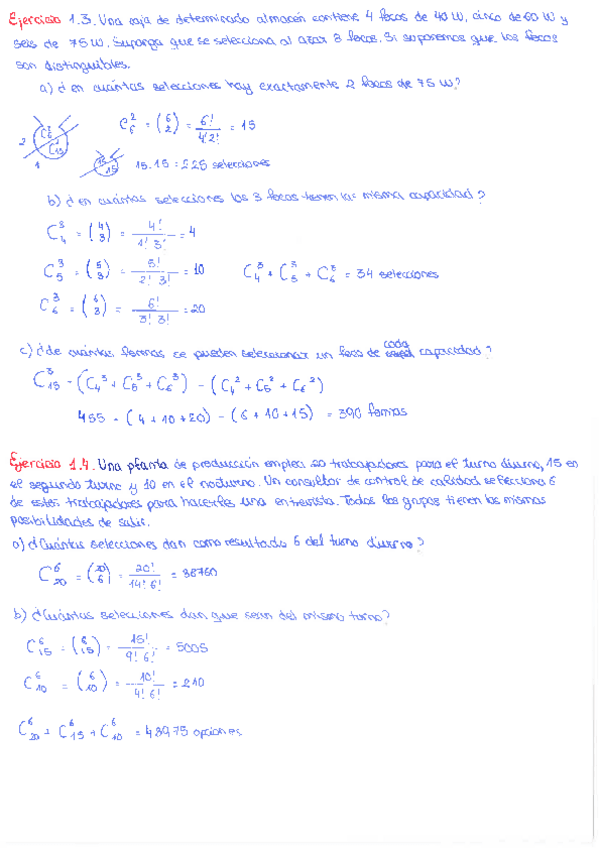 Ejercicio 1.3. Una caja de determinado almacén contiene 4 focos de 40 W, cinco de 60 W y
seis de 75 W. Suponga que se selecciona al azar 3 focos. Si suponemos que los focos
son distinguibles.
a) ¿ en cuántas selecciones hay exactamente 2 focos de 75 W?
C₆² = (6 2) = 6! / 4! 2! = 15
2 C₆²
1
15
15
15 · 15 = 225 selecciones
b) ¿ en cuántas selecciones los 3 focos tienen la misma capacidad?
C₄³ = (4 3) = 4! / 1! 3! = 4
C₅³ = (5 3) = 5! / 2! 3! = 10 C₄³ + C₅³ + C₆³ = 34 selecciones
C₆³ = (6 3) = 6! / 3! 3! = 20
c) ¿de cuántas formas se pueden seleccionar un foco de cada capacidad?
C₁₅³ - (C₄³ + C₅³ + C₆³) - (C₄² + C₅² + C₆²)
455 - (4 + 10 + 20) - (6 + 10 + 15) = 390 formas
Ejercicio 1.4. Una planta de producción emplea 20 trabajadores para el turno diurno, 15 en
el segundo turno y 10 en el nocturno. Un consultor de control de calidad selecciona 6
de estos trabajadores para hacerles una entrevista. Todos los grupos tienen las mismas
posibilidades de salir.
a) ¿Cuántas selecciones dan como resultado 6 del turno diurno?
C₂₀⁶ = (20 6) = 20! / 14! 6! = 38760
b) ¿Cuántas selecciones dan que sean del mismo turno?
C₁₅⁶ = (6 15) = 15! / 9! 6! = 5005
C₁₀⁶ = (6 10) = 10! / 4! 6! = 210
C₂₀⁶ + C₁₅⁶ + C₁₀⁶ = 43975 opciones